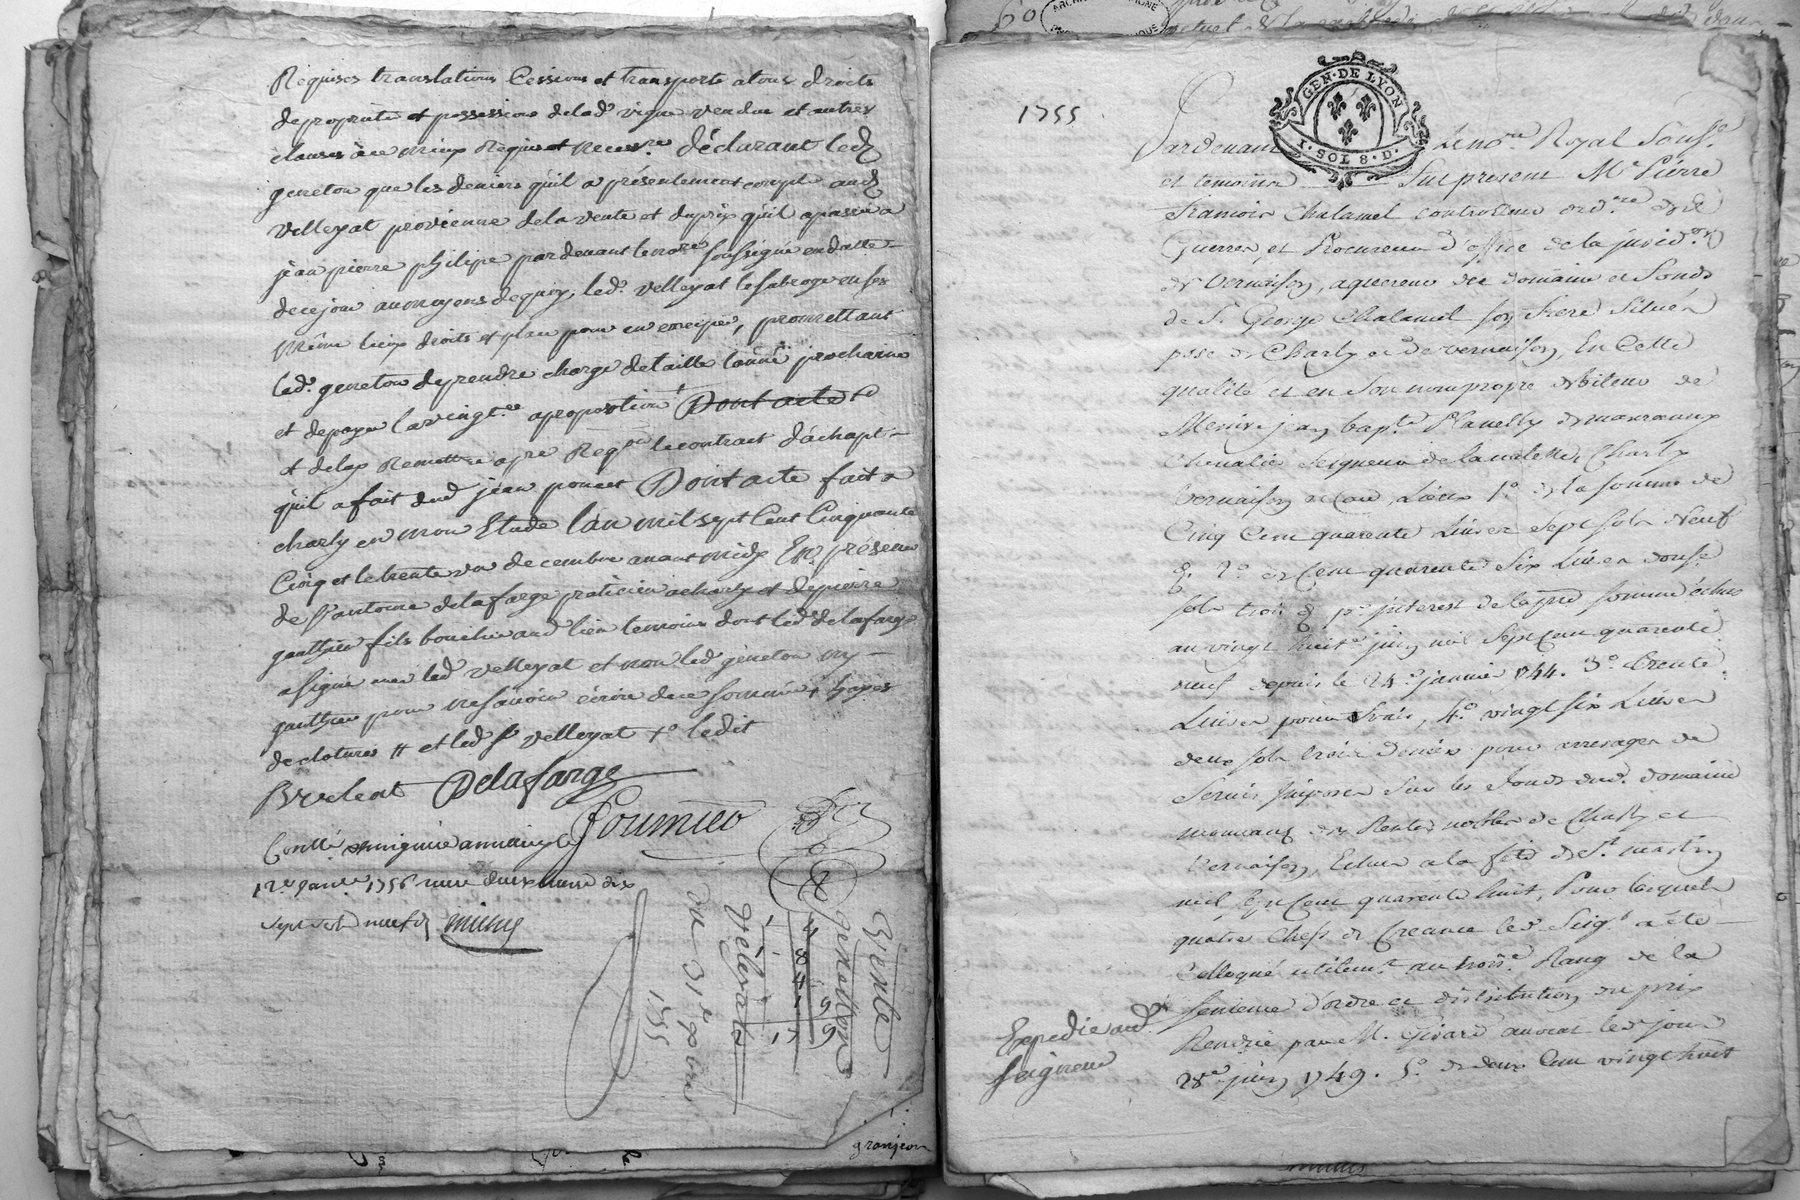 Requises translations Cessions et transports atous droits
depropriété et possession delad vigne vendue et autres
clauses à ce mieux Requis et necess.re déclarant led
geneton que les deniers quil a présentement compté aud
velleyat provienne dela vente et duprix quil apassé a
jean pierre philipe pardevant lenore soussigné en datte
decejour aumoyens dequoy, led. velleyat lesubroge en ses
même lieux droits et place pour en, promettant
led. geneton deprendre charge detaille lannée prochaine
et depayer lavingt.me aproportion Dont acte
et deluy Remettre a pre Reqon lecontract d'achapt
quil afait dud jean poncet Dont acte fait a
charly en mon Etude lan mil sept Cent Cinquante
Cinq et letrente un decembre avant midy En présence
de Sr antoine delafarge praticien acharly et depierre
gauthier fils boucher aud lieu temoins dont led. delafarge
asigné avec led velleyat et non led geneton ny
gauthier pour nesavoir écrire dece sommé
declotures et led Sr velleyat ledit
Delafarge
Fournier
Conllé
12e Janv.er 1756
sept sols neuf d
Vente
geneton
velleyat
du 31e xbre
1755
4
8
4
granjeon
GEN·DE LYON
1·SOL 8·D.
1755
Pardevant Le no.re Royal Souss.é
et temoins Fut present Me Pierre
Francois Chalamel controlleur ord.re des
Guerres, et Procureur d'office de la jurid.on
de Vernaison, aquereur des domaine et fonds
de Sr. George Chalamel son frere Situés
psse de Charly et de vernaison, En Cette
qualité et en Son nom propre debiteur de
Messire jean bapte Planelly de maxeaux
Chevalier Seigneur de lavalette, Charly
Vernaison et au Lieux 1.º de la somme de
Cinq Cent quarente Livres sept sols Neuf
d. 2.º de Cent quarente Six Livres douse
sols trois d pr interest de lad somme échus
au vingt huite juin mil Sept Cent quarente
neuf depuis le 24e janvier 1744. 3.º trente
Livres pour frais, 4.º vingt six Livres
deux sols trois deniers pour arrerages de
Servis imposés Sur les fonds dud. domaine
mouvans des Rentes nobles de Charly et
Vernaison, Echus a la fete de St martin
mil Sept Cent quarente huit, Pour lesquels
quatre Chefs de Creance led Seigr a été
Colloqué utilemt au trois.e Rang de la
Sentence d'ordre et distribution du prix
Rendüe par M. Girard avocat led jour
28e juin 1749. 5.º de deux Cent vingt huit
Expedié aud.
Seigneur